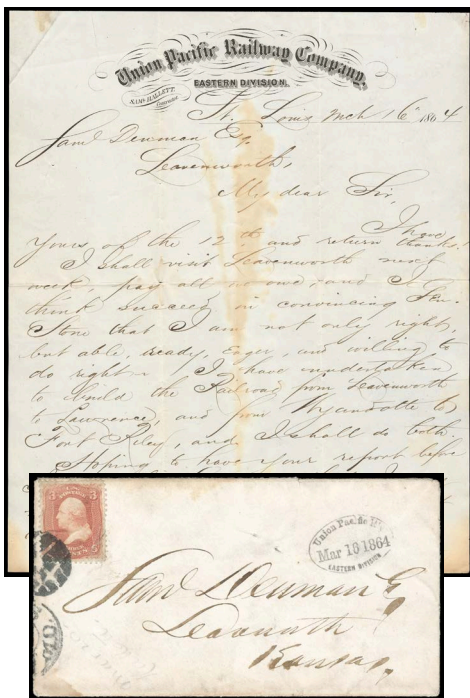 Union Pacific Railway Company.
EASTERN DIVISION.
SAML HALLETT
St. Louis Mch 16th 1864
Saml Denman Esq
Leavenworth,
My dear Sir,
I have
yours of the 12th and return thanks.
I shall visit Leavenworth next
week, pay all I owe, and I
think succeed in convincing
Stone that I am not only right,
but able, ready, Eager, and willing to
do right - I have undertaken
to build the Railroad from Leavenworth
to Lawrence, and from Wyandotte to
Fort Riley and I shall do both.
Hoping to have your report before
3 3
Union Pacific
Mar 16 1864
EASTERN DIVISION
Saml Denman Esq
Kansas,
MO.